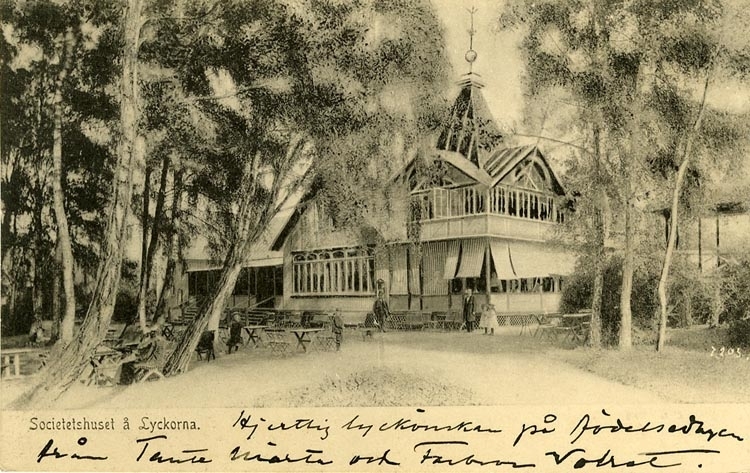 Societetshuset å Lyckorna.
Hjertlig lyckönskan på födelsedagen
från Tante Märta och Farbror